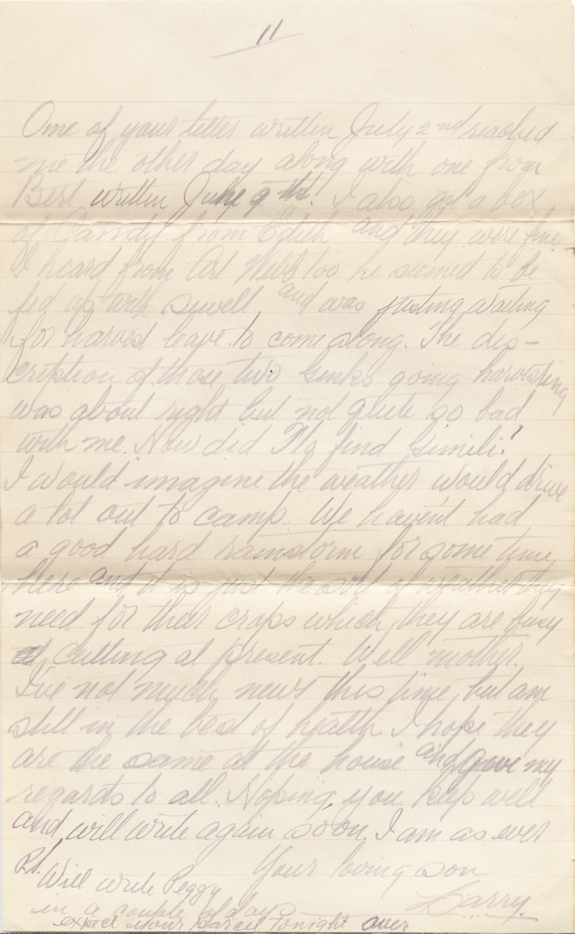 11
One of your letter written July 2nd reached
me the other day along with one from
Bert written June 9th. I also got a box
of Candy from Edith and they were fine
I heard from Art too he seemed to be
fed up with and was justing waiting
for harvest leave to come along. The dis-
cription of those two Ginks going harvesting
was about right but not quite so bad
with me. How did find Gimili?
I would imagine the weather would drive
a lot out to camp. We havent had
a good hard rainstorm for some time
here and it is just the sort of weather they
need for their crops which they are busy
cutting at present. Well mother.
I've not much news this time, but am
still in the best of health. I hope they
are the same at the house and give my
regards to all. Hoping you keep well
and will write again soon, I am as ever
Your loving son
Larry.
P.S. Will write Peggy
in a couple of days
expect your parcel tonight over